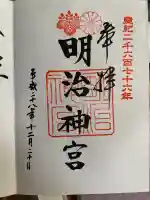 皇紀二千六百七十六年
奉拝
明治神宮
平成二十八年十二月二十日